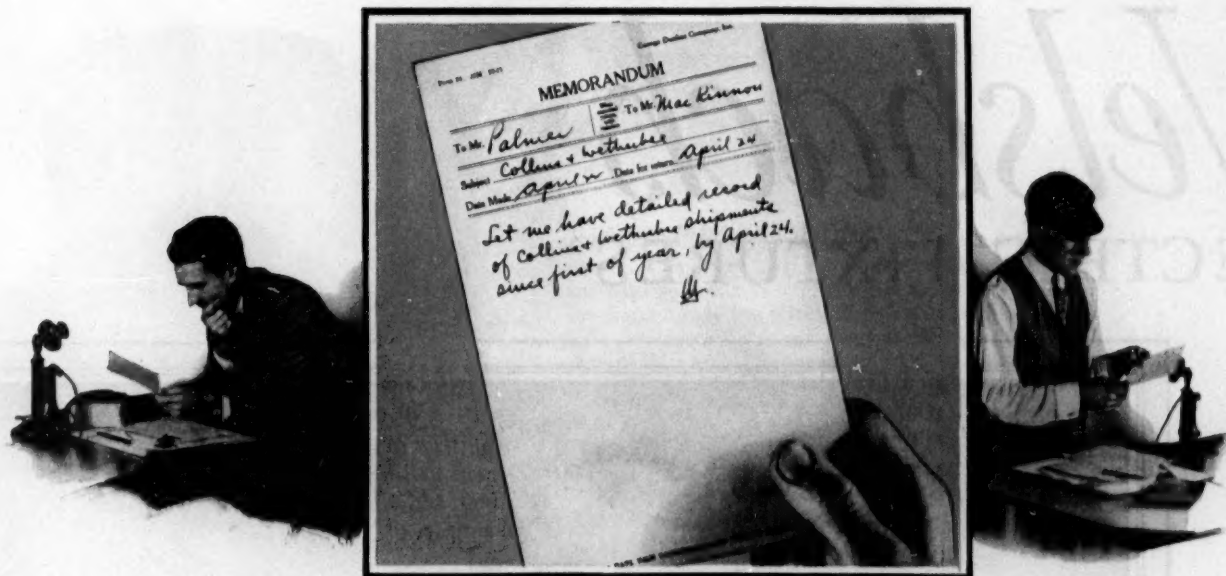 George Dunbar Company, Inc.
MEMORANDUM
To Mr. Palmer To Mr. MacKinnon
Subject Collins + Wetherbee
Date Made April 22 Date for return April 24
Let me have detailed record
of Collins + Wetherbee shipments
since first of year, by April 24.